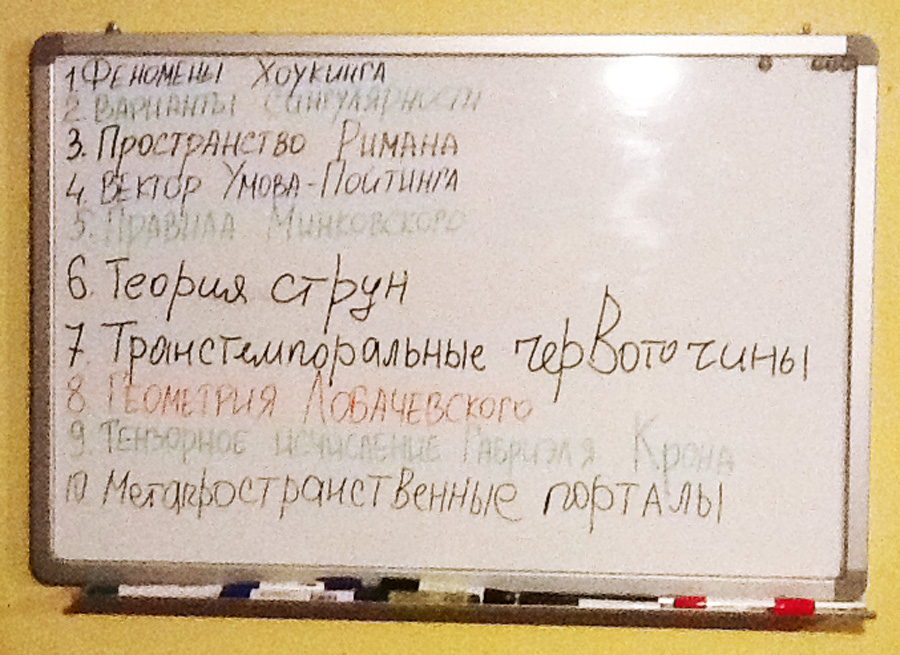 1 Феномены Хоукинга
2. Варианты сингулярности
3. Пространство Римана
4. Вектор Умова-Пойтинга
5. Правила Минковского
6. Теория струн
7. Транстемпоральные червоточины
8. Геометрия Ловачевского
9. Тензорное исчисление Габриэля Крона
10 Метапространственные порталы